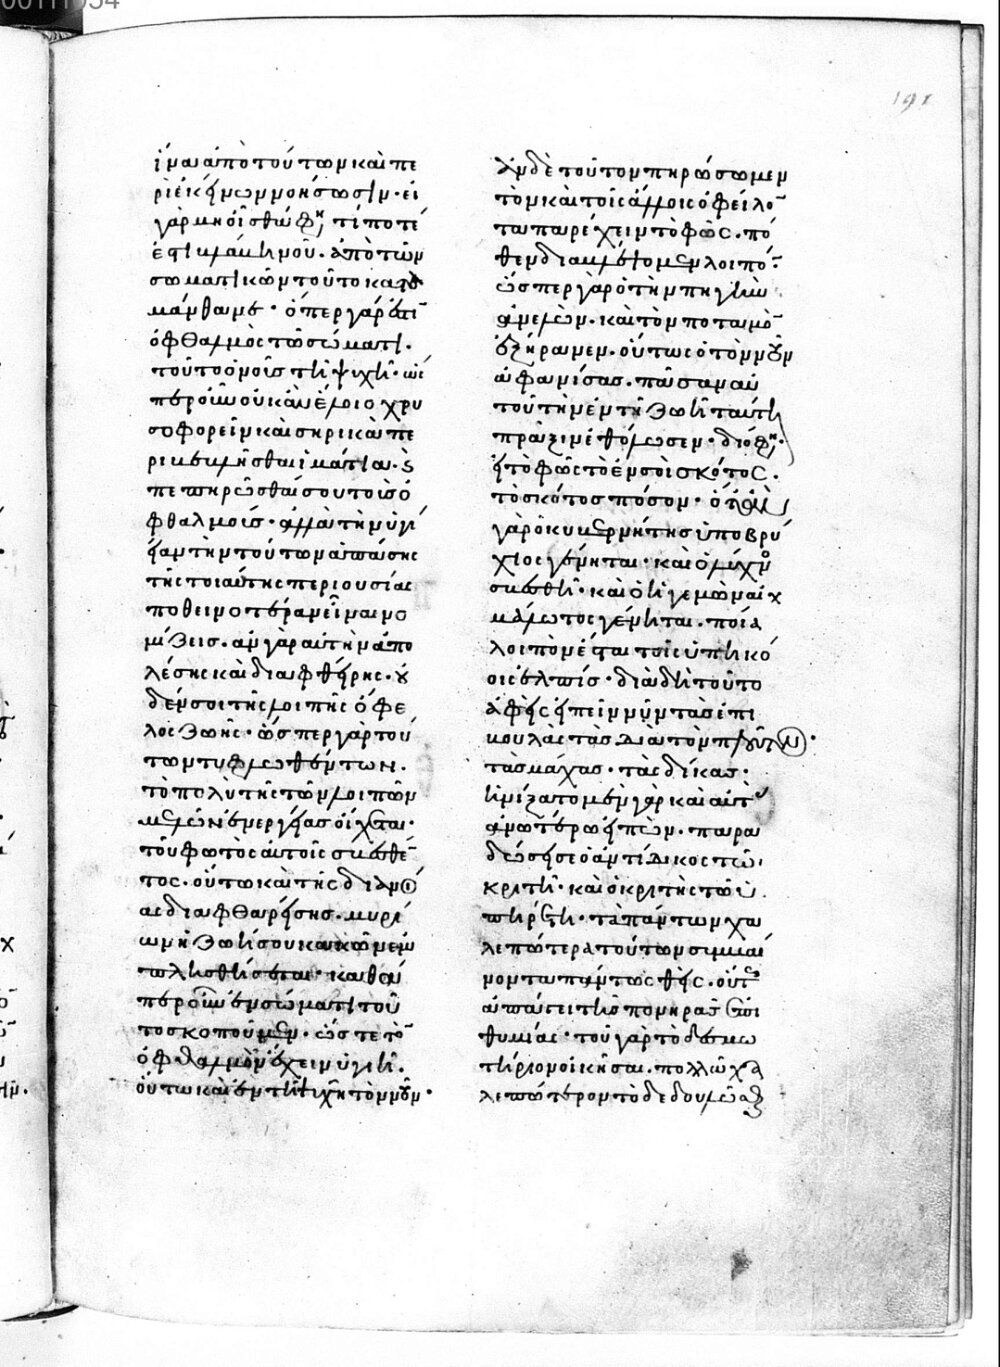 191
ἵνα ἀπὸ τούτων καὶ πε
ρὶ ἐκείνων νοήσωσιν· εἰ
γὰρ μὴ οἶσθά φη, τί ποτέ
ἐστι βλάβη νοῦ· ἀπὸ τῶν
σωματικῶν τοῦτο κατα
μάνθανε· ὅπερ γάρ ἐστι
ὀφθαλμὸς τῶ σώματι·
τοῦτο ὁ νοῦς τῆ ψυχῆ· ὡς
περ οὖν οὐκ ἂν ἕλοιο χρυ
σοφορεῖν καὶ σηρικὰ πε
ριβεβλῆσθαι ἱμάτια·
πεπηρῶσθαί σου τοὺς ὀ
φθαλμούς· ἀλλὰ τὴν ὑγί
ειαν τὴν τούτων ἁπάσης
τῆς τοιαύτης περιουσίας
ποθεινοτέραν εἶναι νο
μίζεις· ἂν γὰρ αὐτὴν ἀπο
λέσης καὶ διαφθείρης· οὐ
δέν σοι τῆς λοιπῆς ὄφε
λος ζωῆς· ὥσπερ γὰρ τού
των τυφλωθέντων·
τὸ πολὺ τῆς τῶν λοιπῶν
μελῶν ἐνεργείας οἴχεται·
τοῦ φωτὸς αὐτοῖς σβεσθέν
τος· οὕτω καὶ τῆς διανοί
ας διαφθαρείσης· μυρί
ων ἡ ζωή σου κακῶν ἐμ
πλησθήσεται· καθά
περ οὖν ἐν σώματι τοῦ
το σκοποῦμεν· ὥστε τὸν
ὀφθαλμὸν ἔχειν ὑγιῆ·
οὕτω καὶ ἐν τῆ ψυχῆ τὸν νοῦν·
ἂν δὲ τοῦτον πηρώσωμεν
τὸν καὶ τοῖς ἄλλοις ὀφείλον
τα παρέχειν τὸ φῶς· πό
θεν διαβλέψομεν λοιπόν·
ὥσπερ γὰρ ὁ τὴν πηγὴν
ἀνελὼν· καὶ τὸν ποταμὸν
ἐξήρανεν· οὕτως ὁ τὸν νοῦν
ἀφανίσας· πᾶσαν αὐ
τοῦ τὴν ἐν τῆ ζωῆ ταύτη
πρᾶξιν ἐθόλωσεν· διό φη,
εἰ τὸ φῶς τὸ ἐν σοὶ σκότος·
τὸ σκότος πόσον· ὅταν
γὰρ ὁ κυβερνήτης ὑποβρύ
χιος γένηται· καὶ ὁ λύχνος
σβεσθῆ· καὶ ὁ ἡγεμὼν αἰχ
μάλωτος γένηται· ποία
λοιπὸν ἔσται τοῖς ὑπηκό
οις ἐλπίς· διὰ δὴ τοῦτο
ἀφεὶς εἰπεῖν νῦν τὰς ἐπι
βουλὰς τὰς διὰ τὸν πλοῦτον·
τὰς μάχας· τὰς δίκας·
ἠνίξατο μὲν γὰρ καὶ αὐτὰ
ἀνωτέρω εἰπὼν· παρα
δώσει σε ὁ ἀντίδικος τῶ
κριτῆ· καὶ ὁ κριτὴς τῶ ὑ
πηρέτη· τὰ πάντων χα
λεπώτερα τούτων συμβαί
νοντα πάντως θεὶς· οὕτως
ἀπάγει τῆς πονηρᾶς ἐπι
θυμίας· τοῦ γὰρ τὸ δεσμω
τήριον οἰκῆσαι· πολλῶ χα
λεπώτερον τὸ δεδουλῶσθαι